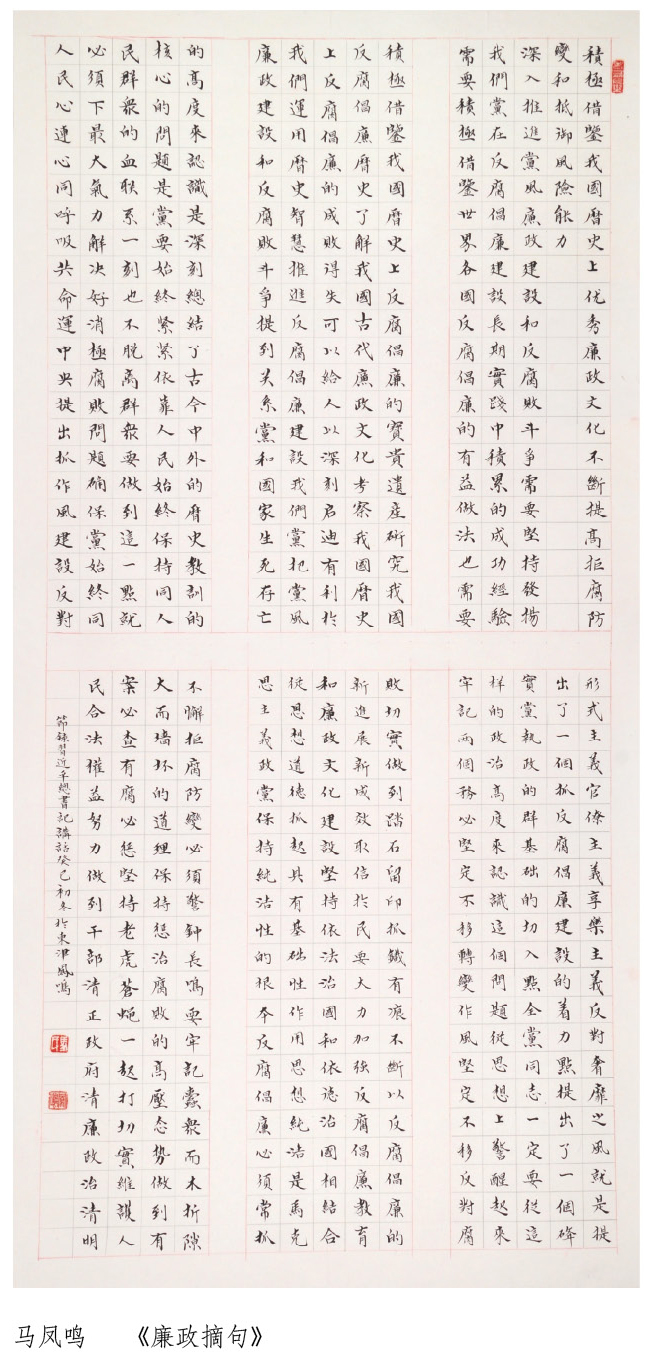 積極借鑒我國曆史上优秀廉政文化不斷提高拒腐防
變和抵御風險能力
深入推進黨風廉政建設和反腐敗斗爭需要堅持發揚
我們黨在反腐倡廉建設長期實踐中積累的成功經驗
需要積極借鑒世界各國反腐倡廉的有益做法也需要
積極借鑒我國曆史上反腐倡廉的寶貴遺産研究我國
反腐倡廉曆史了解我國古代廉政文化考察我國曆史
上反腐倡廉的成敗得失可以給人以深刻启迪有利於
我們運用曆史智慧推進反腐倡廉建設我們黨把黨風
廉政建設和反腐敗斗爭提到关系黨和國家生死存亡
的高度來認識是深刻總結了古今中外的曆史教訓的
核心的問題是黨要始終緊緊依靠人民始終保持同人
民群衆的血联系一刻也不脫離群衆要做到這一點就
必須下最大氣力解决好消極腐敗問題确保黨始終同
人民心連心同呼吸共命運中央提出抓作風建設反對
形式主義官僚主義享樂主義反對奢靡之風就是提
出了一個抓反腐倡廉建設的着力點提出了一個
實黨執政的群基础的切入點全黨同志一定要從這
样的政治高度來認識這個問題從思想上警醒起來
牢記兩個務必堅定不移轉變作風堅定不移反對腐
敗切實做到踏石留印抓鐵有痕不斷以反腐倡廉的
新進展新成效取信於民要大力加強反腐倡廉教育
和廉政文化建設堅持依法治國和依德治國相結合
從思想道德抓起具有基础性作用思想純洁是馬克
思主義政黨保持純洁性的根本反腐倡廉必須常抓
不懈拒腐防變必須警鈡長鳴要牢記蠹衆而木折隙
大而墙坏的道理保持惩治腐敗的高壓态势做到有
案必查有腐必惩堅持老虎蒼蝇一起打切實維護人
民合法權益努力做到干部清正政府清廉政治清明
節錄習近平總書記講話癸巳初冬於東津鳳鳴
马凤鸣 《廉政摘句》